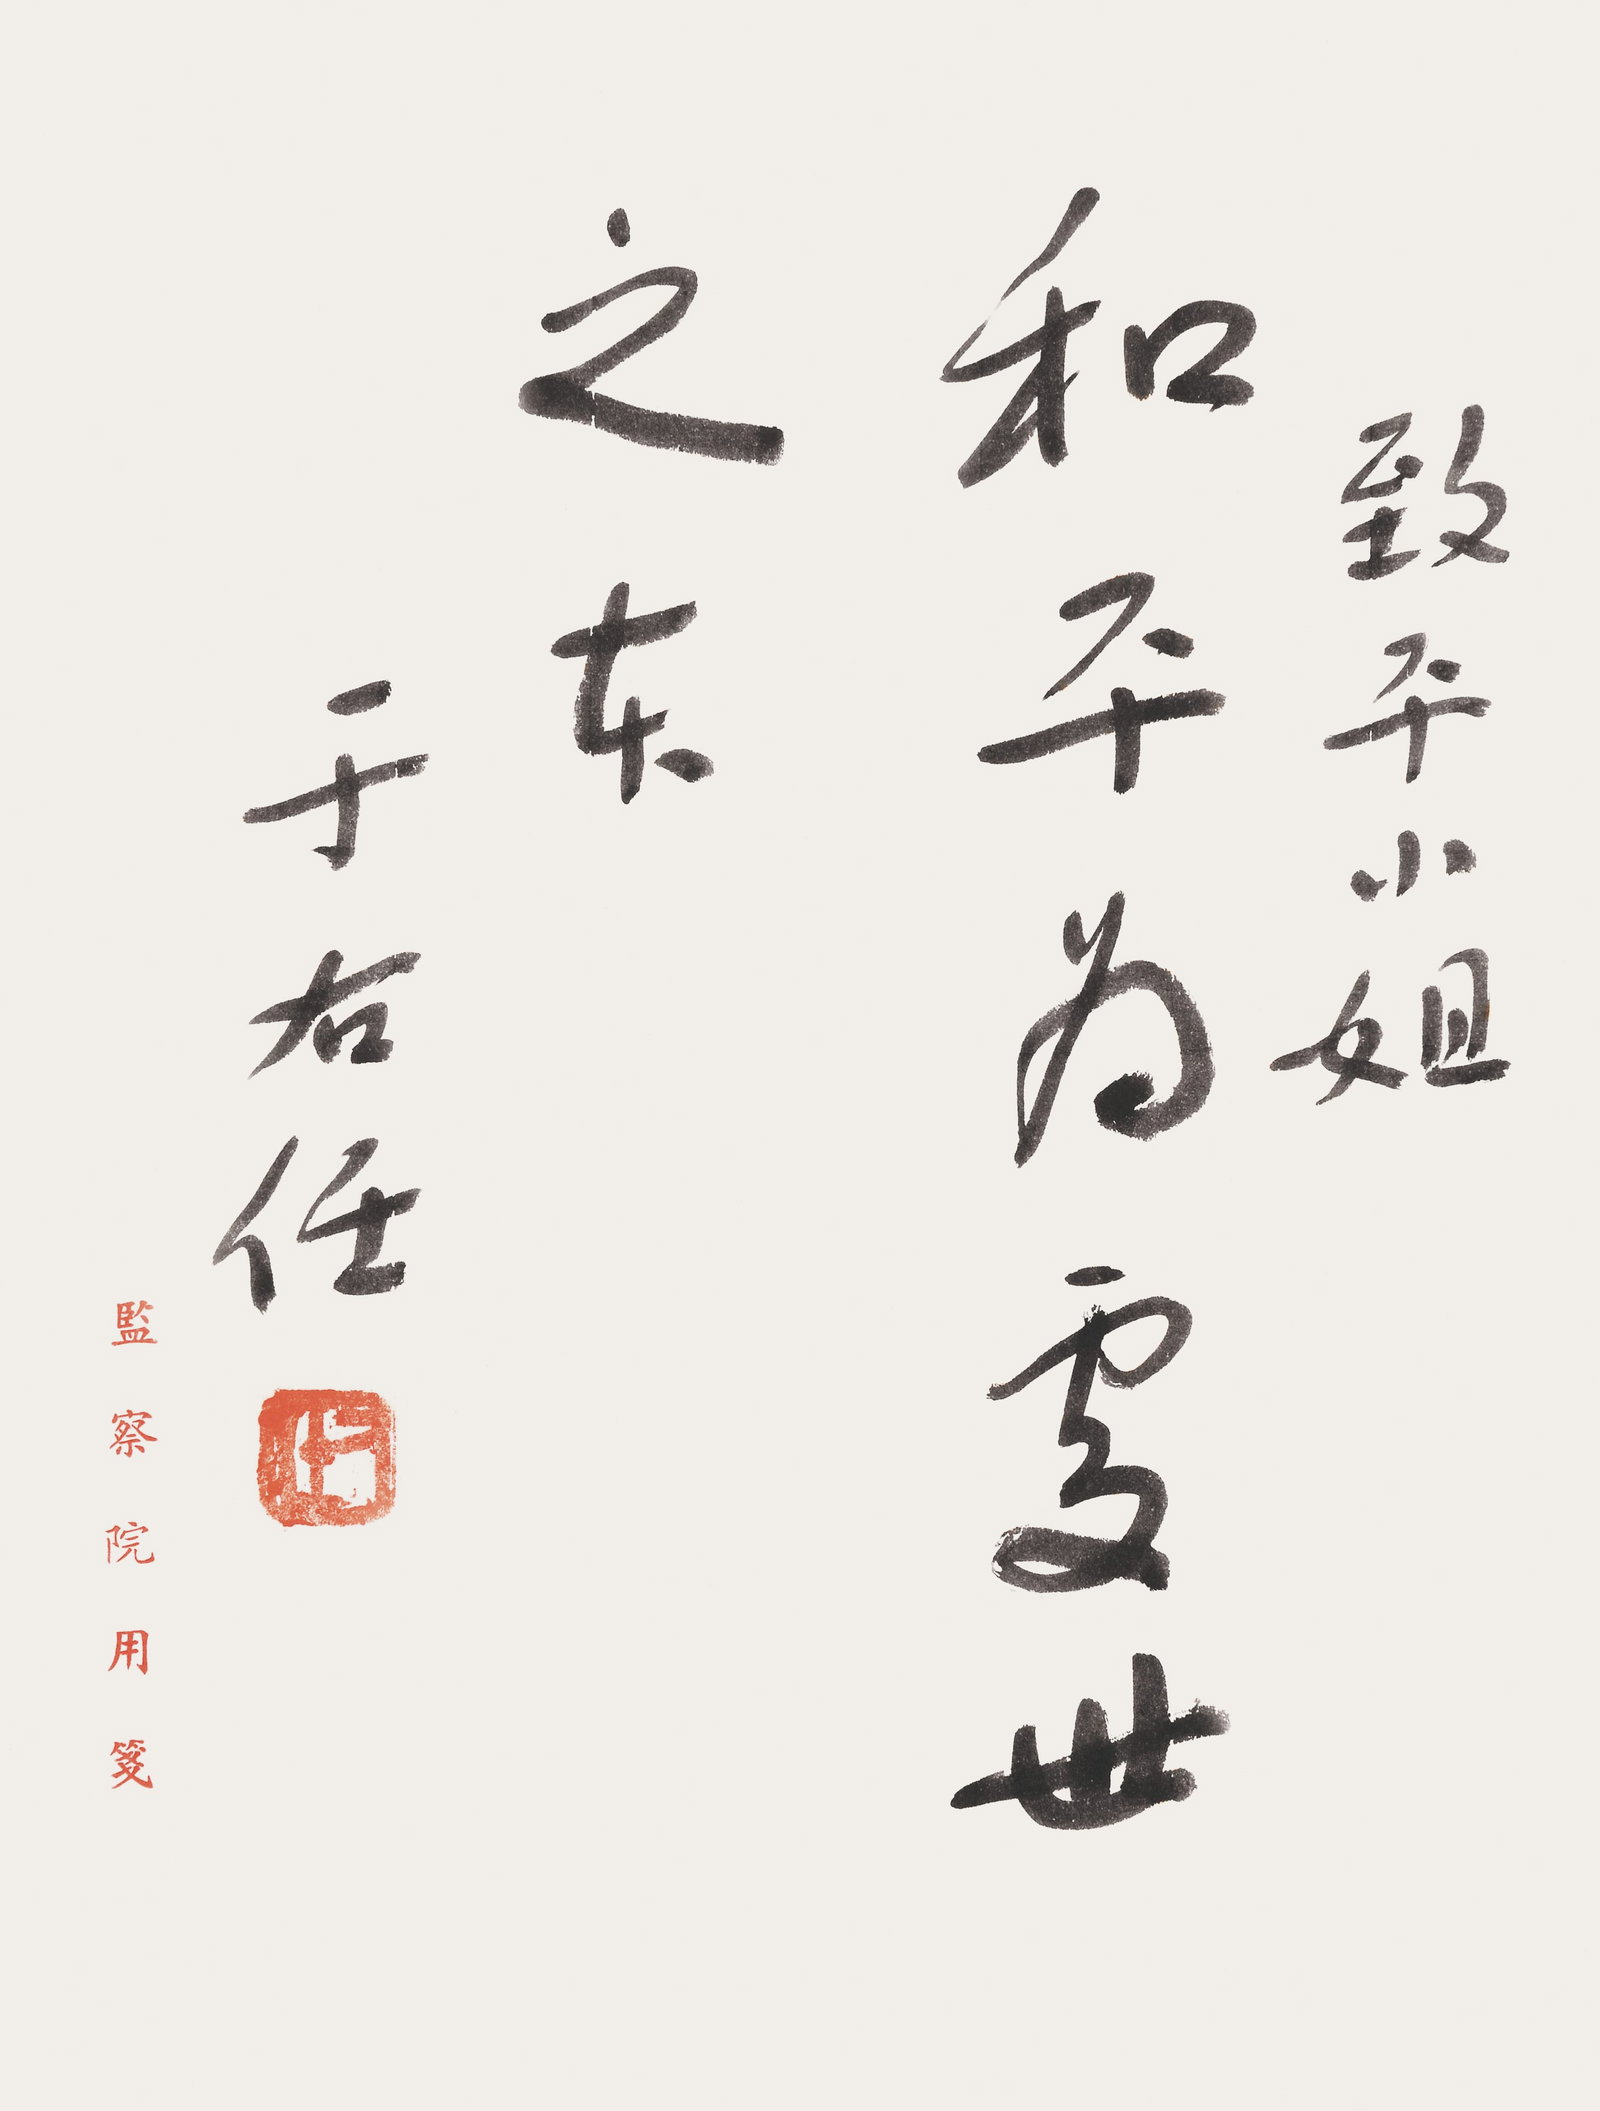 致平小姐
和平為處世
之本
于右任
監察院用箋